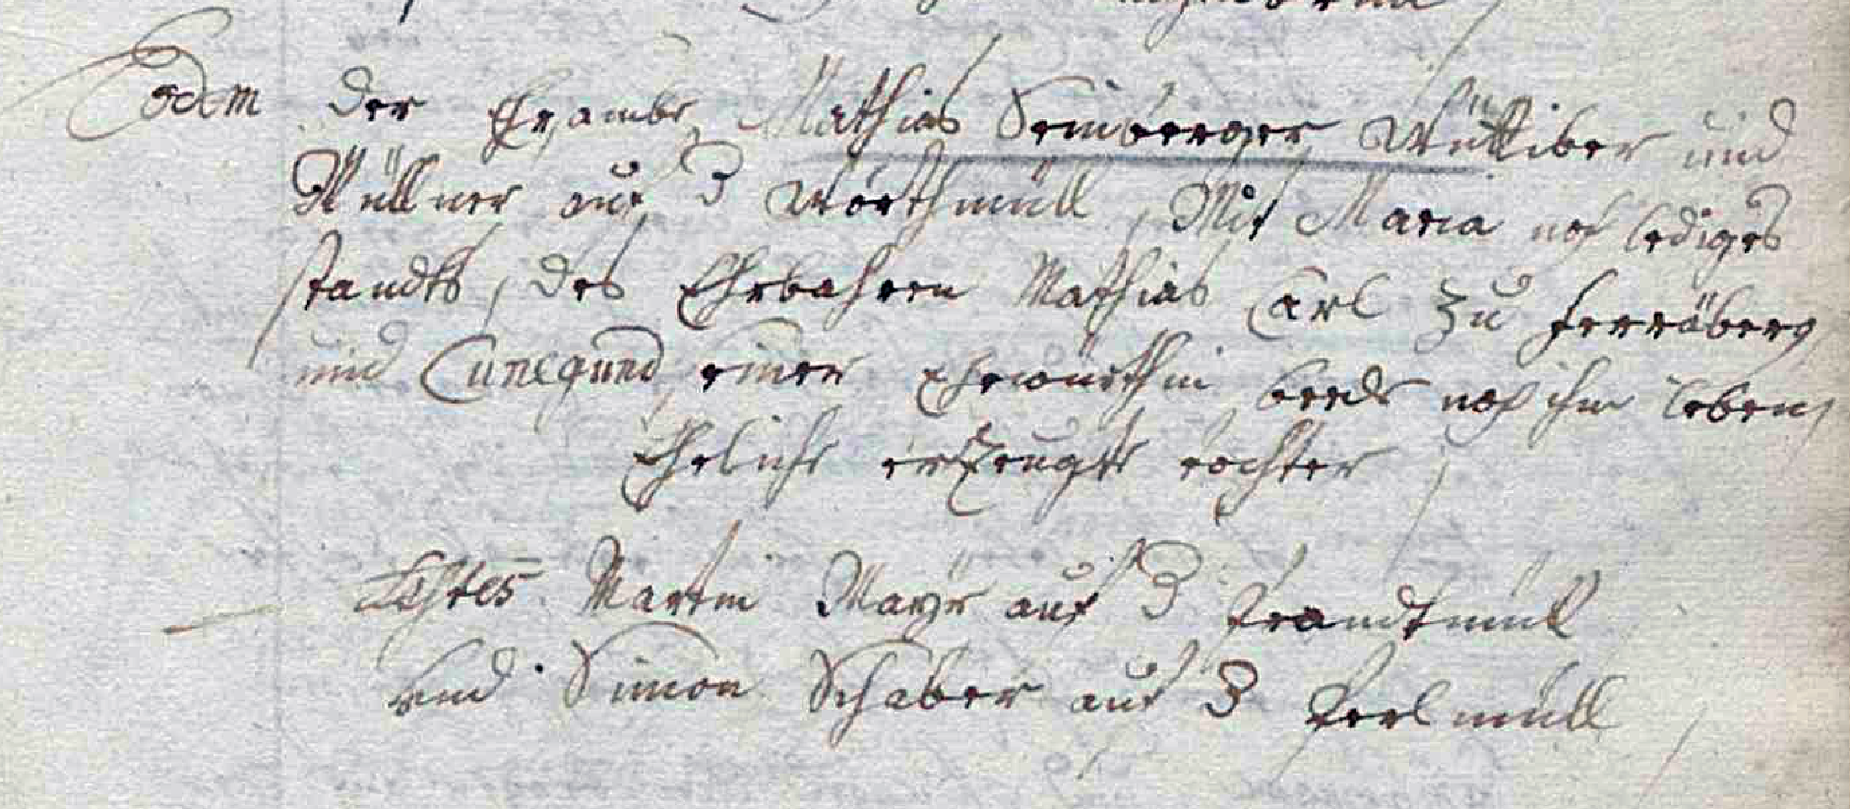 Eodem der Ehrambe Mathias Seinberger Wittiber und
Müllner auf d Wörthmüll, Mit Maria noch lediges
standts, des Ehrbahren Mathias Carl zu
und Cunegund einer Ehewürthin beede noch ihm leben,
Ehelich erzeugte tochter
testes Martin Mayr auf d
und Simon Schaber auf d